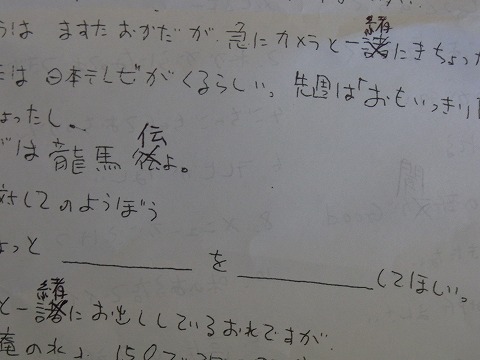 うは ますだ おかだ が、急に カメラと一緒にきちょった
は 日本テレビがくるらしい。先週は「おもいっきり
ょったし。
は 龍馬伝よ。
対してのようぼう
ょっと ＿＿＿＿＿ を ＿＿＿＿＿ してほしい。
と一緒に お出ししている おれですが
庵の水」